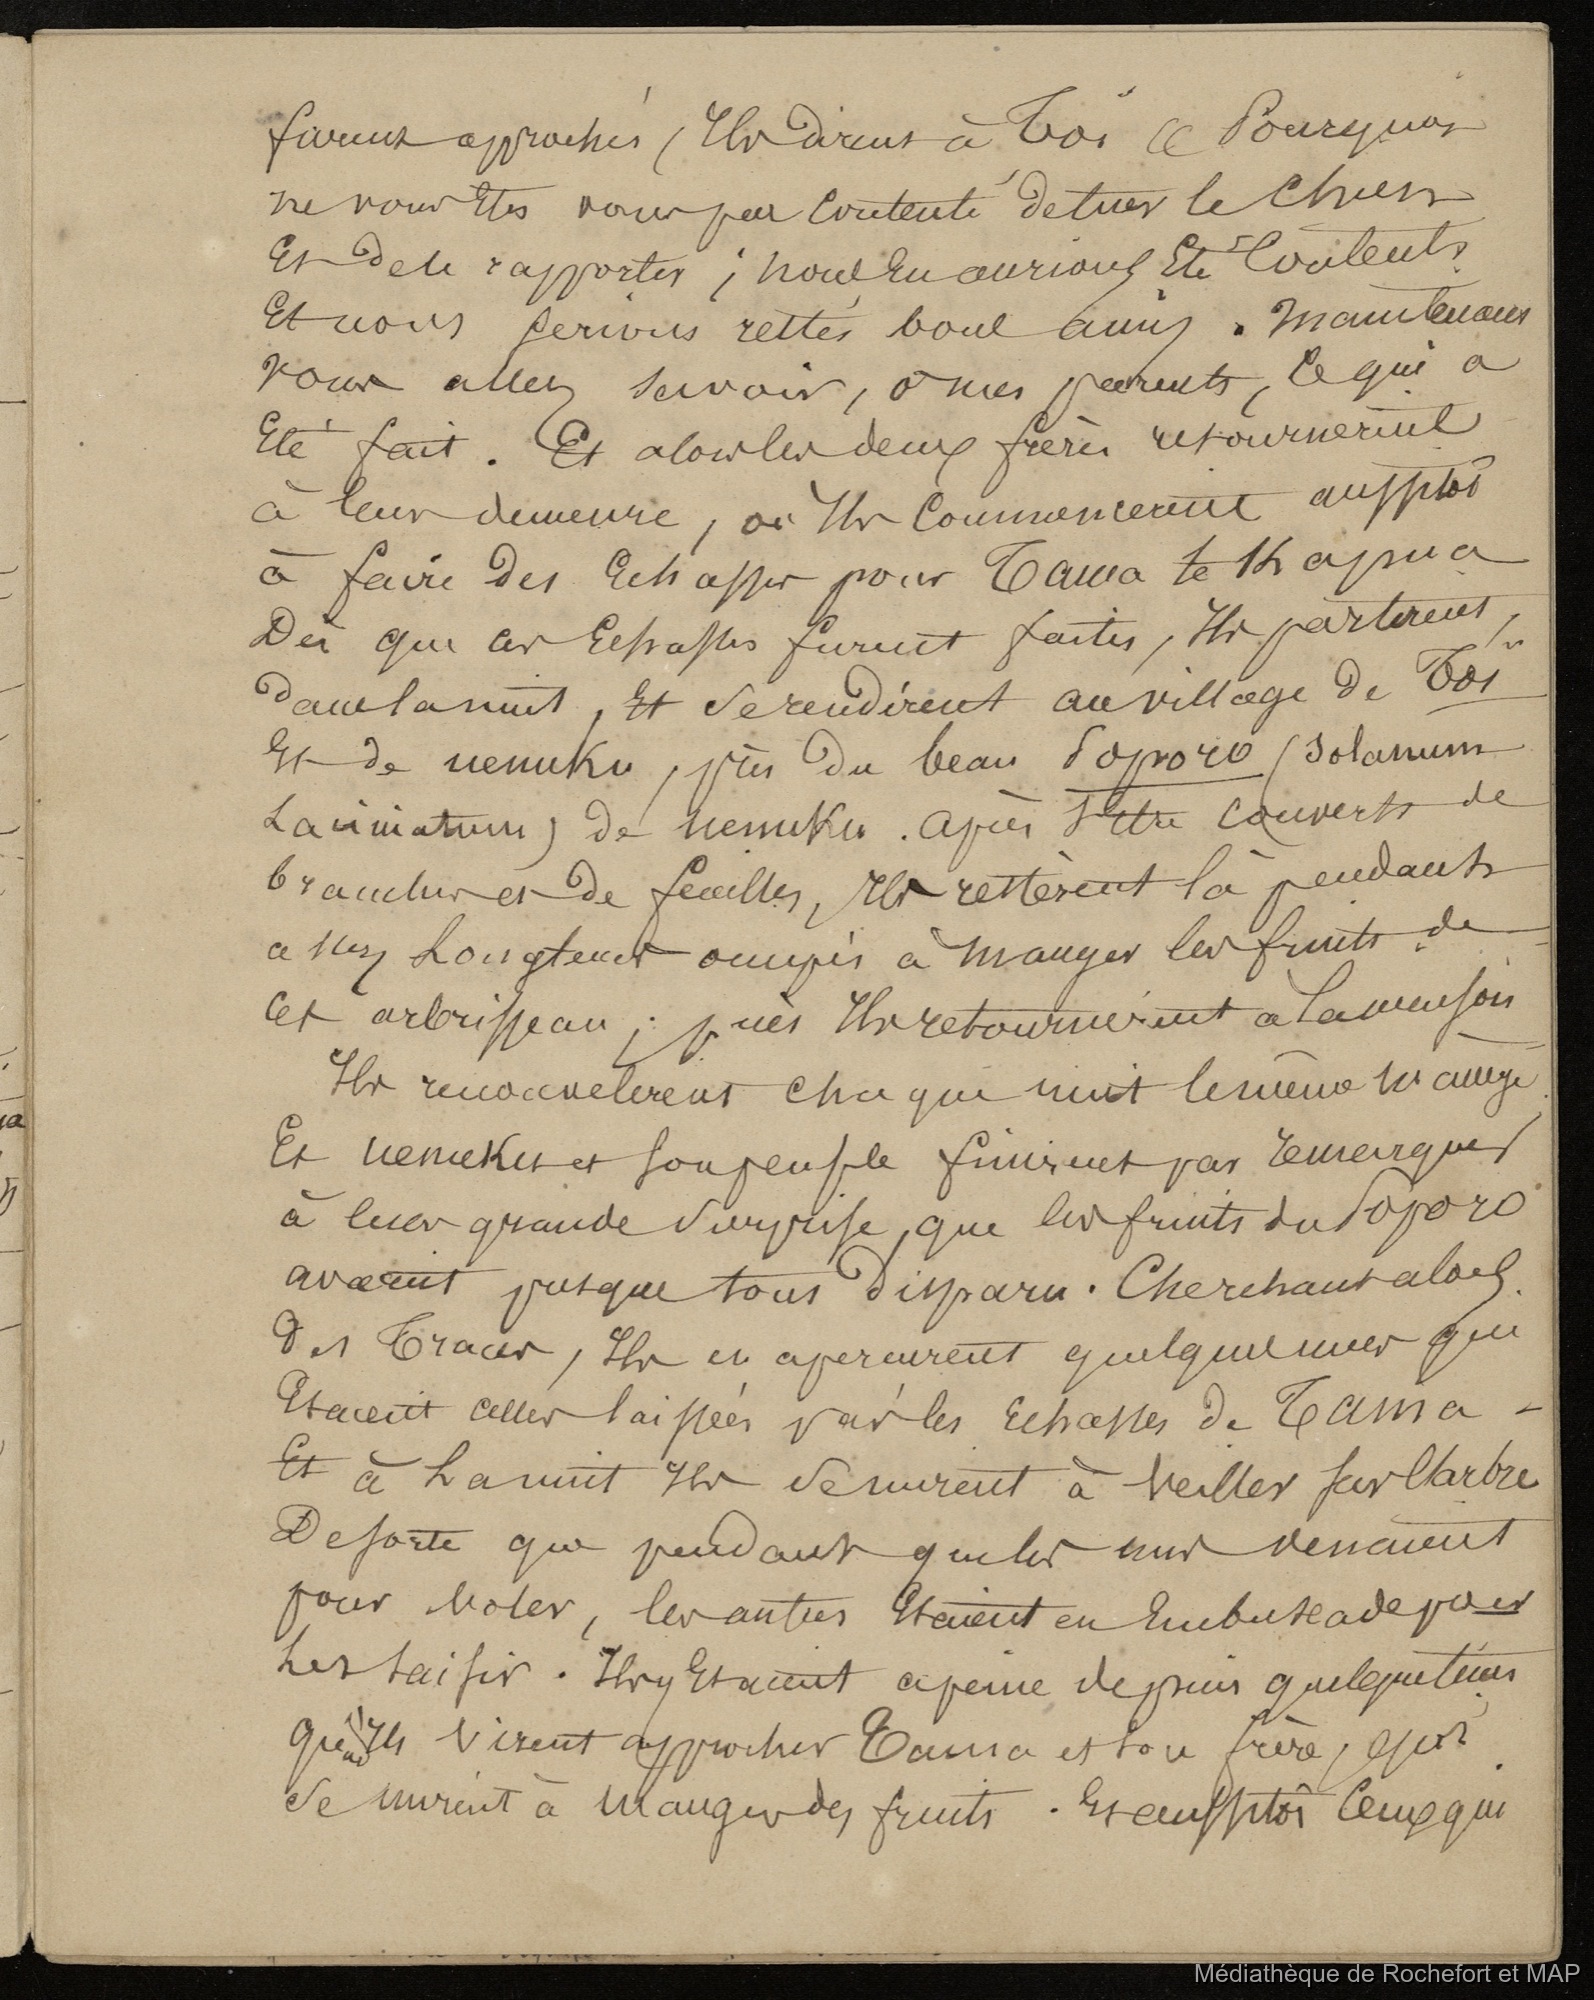 furent approchés, Ils dirent à Toï « Pourquoi
ne vous êtes vous pas contenté de tuer le chien
Et de le rapporter ; nous en aurions Eté contents
Et nous serions restés bons amis. Maintenant
vous allez savoir, ô mes parents, ce qui a
Eté fait. Et alors les deux frères retournerent
à leur demeure, où Ils commencerent aussitôt
à faire des Echasses pour Tama te Kapua
Dès que ces Echasses furent faites, Ils partirent,
dans la nuit, Et se rendirent au village de Toï
Et de uenuku, près du beau Poporo (Solanum
Laciniatum) de uenuku. après s'être couverts de
branches et de feuilles, Ils restèrent là pendant
assez Longtems occupés à manger les fruits de
cet arbrisseau ; puis Ils retournèrent à la maison
Ils renouvelerent chaque nuit le même manège
Et uenuku et son peuple finirent par remarquer
à leur grande surprise, que les fruits du Poporo
avaient presque tous disparu. Cherchant alors
des traces, Ils en aperçurent quelques unes qui
Etaient celles laissées par les Echasses de Tama -
Et à La nuit Ils se mirent à veiller sur l'arbre
De sorte que pendant que les uns venaient
pour voler, les autres Etaient en Embuscade pour
Les saisir. Ils y Etaient a peine depuis quelque tems
quand Ils virent approcher Tama et son frère, qui
se mirent à manger des fruits. Et aussitôt ceux qui
Médiathèque de Rochefort et MAP